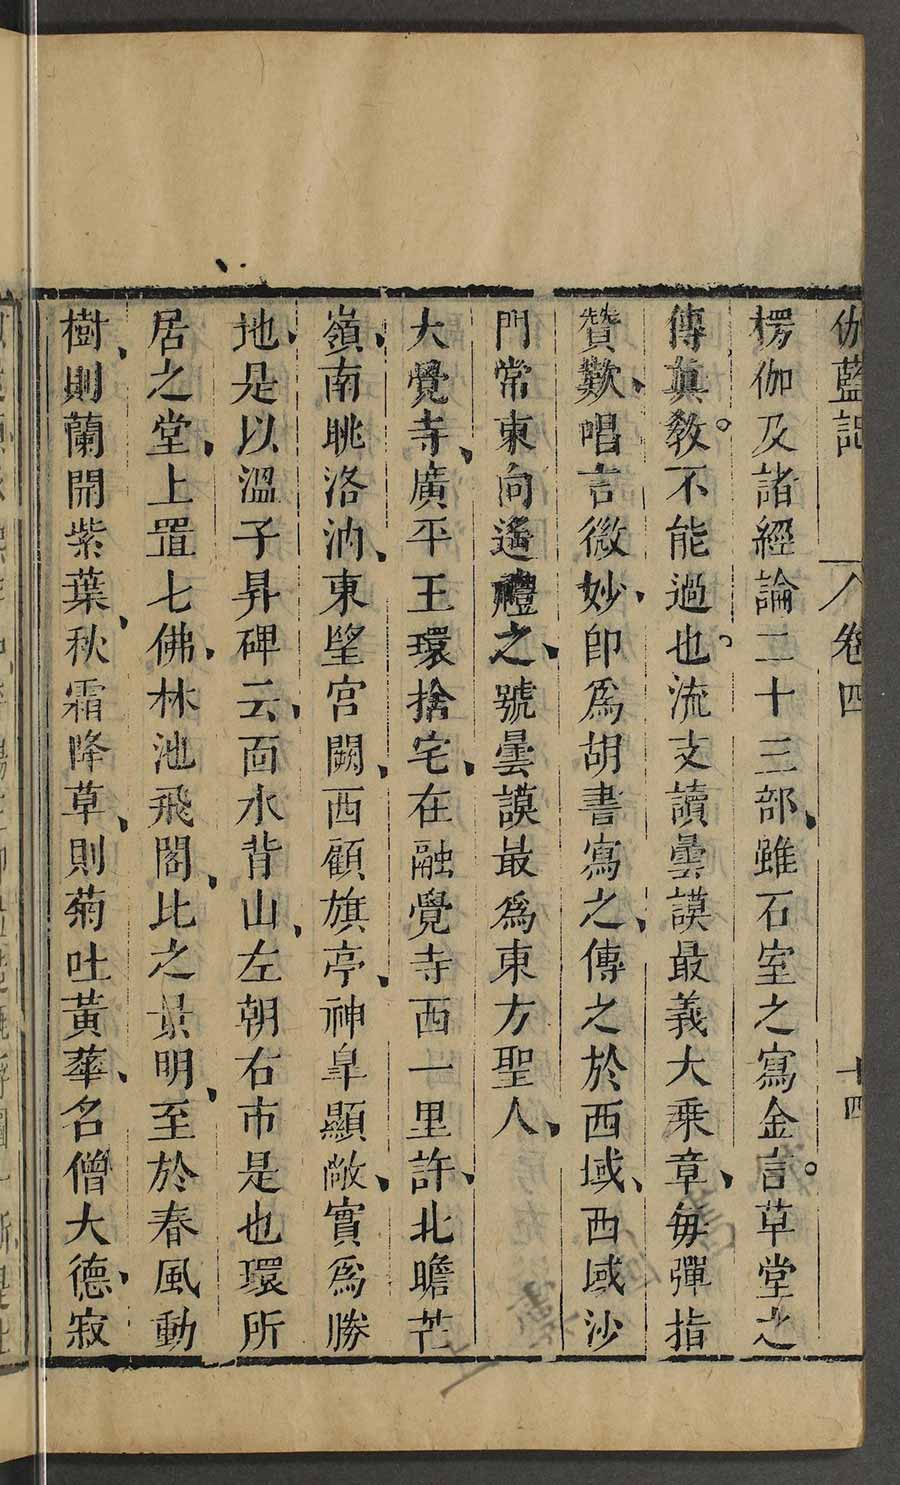 伽藍記 卷四 十四
楞伽及諸經論二十三部、雖石室之寫金言。草堂之
傳眞敎。不能過也。流支讀曇謨最義大乘章、每彈指
贊歎、唱言微妙、卽爲胡書寫之、傳之於西域、西域沙
門常東向遙禮之、號曇謨最爲東方聖人、
大覺寺、廣平王環捨宅、在融覺寺西一里許、北瞻芒
嶺、南眺洛汭、東望宮闕、西顧旗亭、神皐顯敞、實爲勝
地、是以溫子昇碑云、面水背山、左朝右市是也環所
居之堂、上置七佛、林池飛閣、比之景明、至於春風動
樹、則蘭開紫葉、秋霜降草、則菊吐黃華、名僧大德、寂